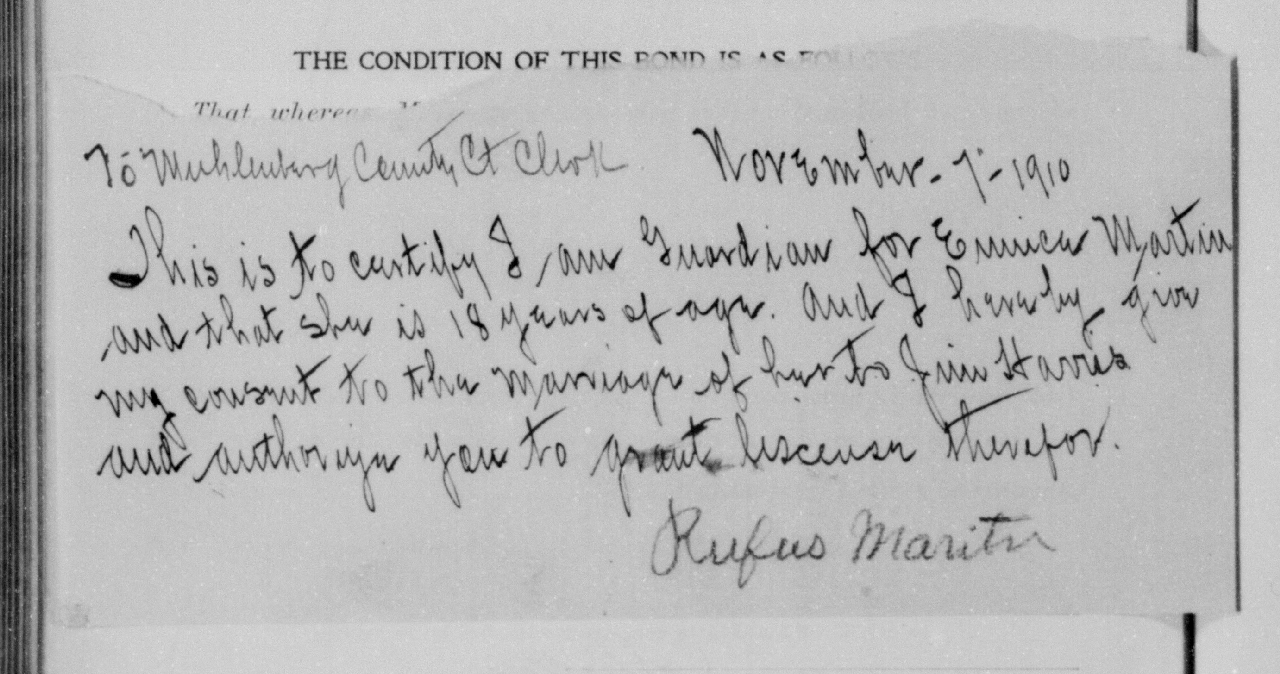 THE CONDITION OF THIS BOND IS AS FOLLOWS
That whereas
To Muhlenberg County Ct Clerk November - 7 - 1910
This is to certify I am Guardian for Martin
and that she is 18 years of age. And I hereby give
my consent to the marriage of her to Jim Harris
and authorize you to grant liscense therefor.
Rufus Maritn